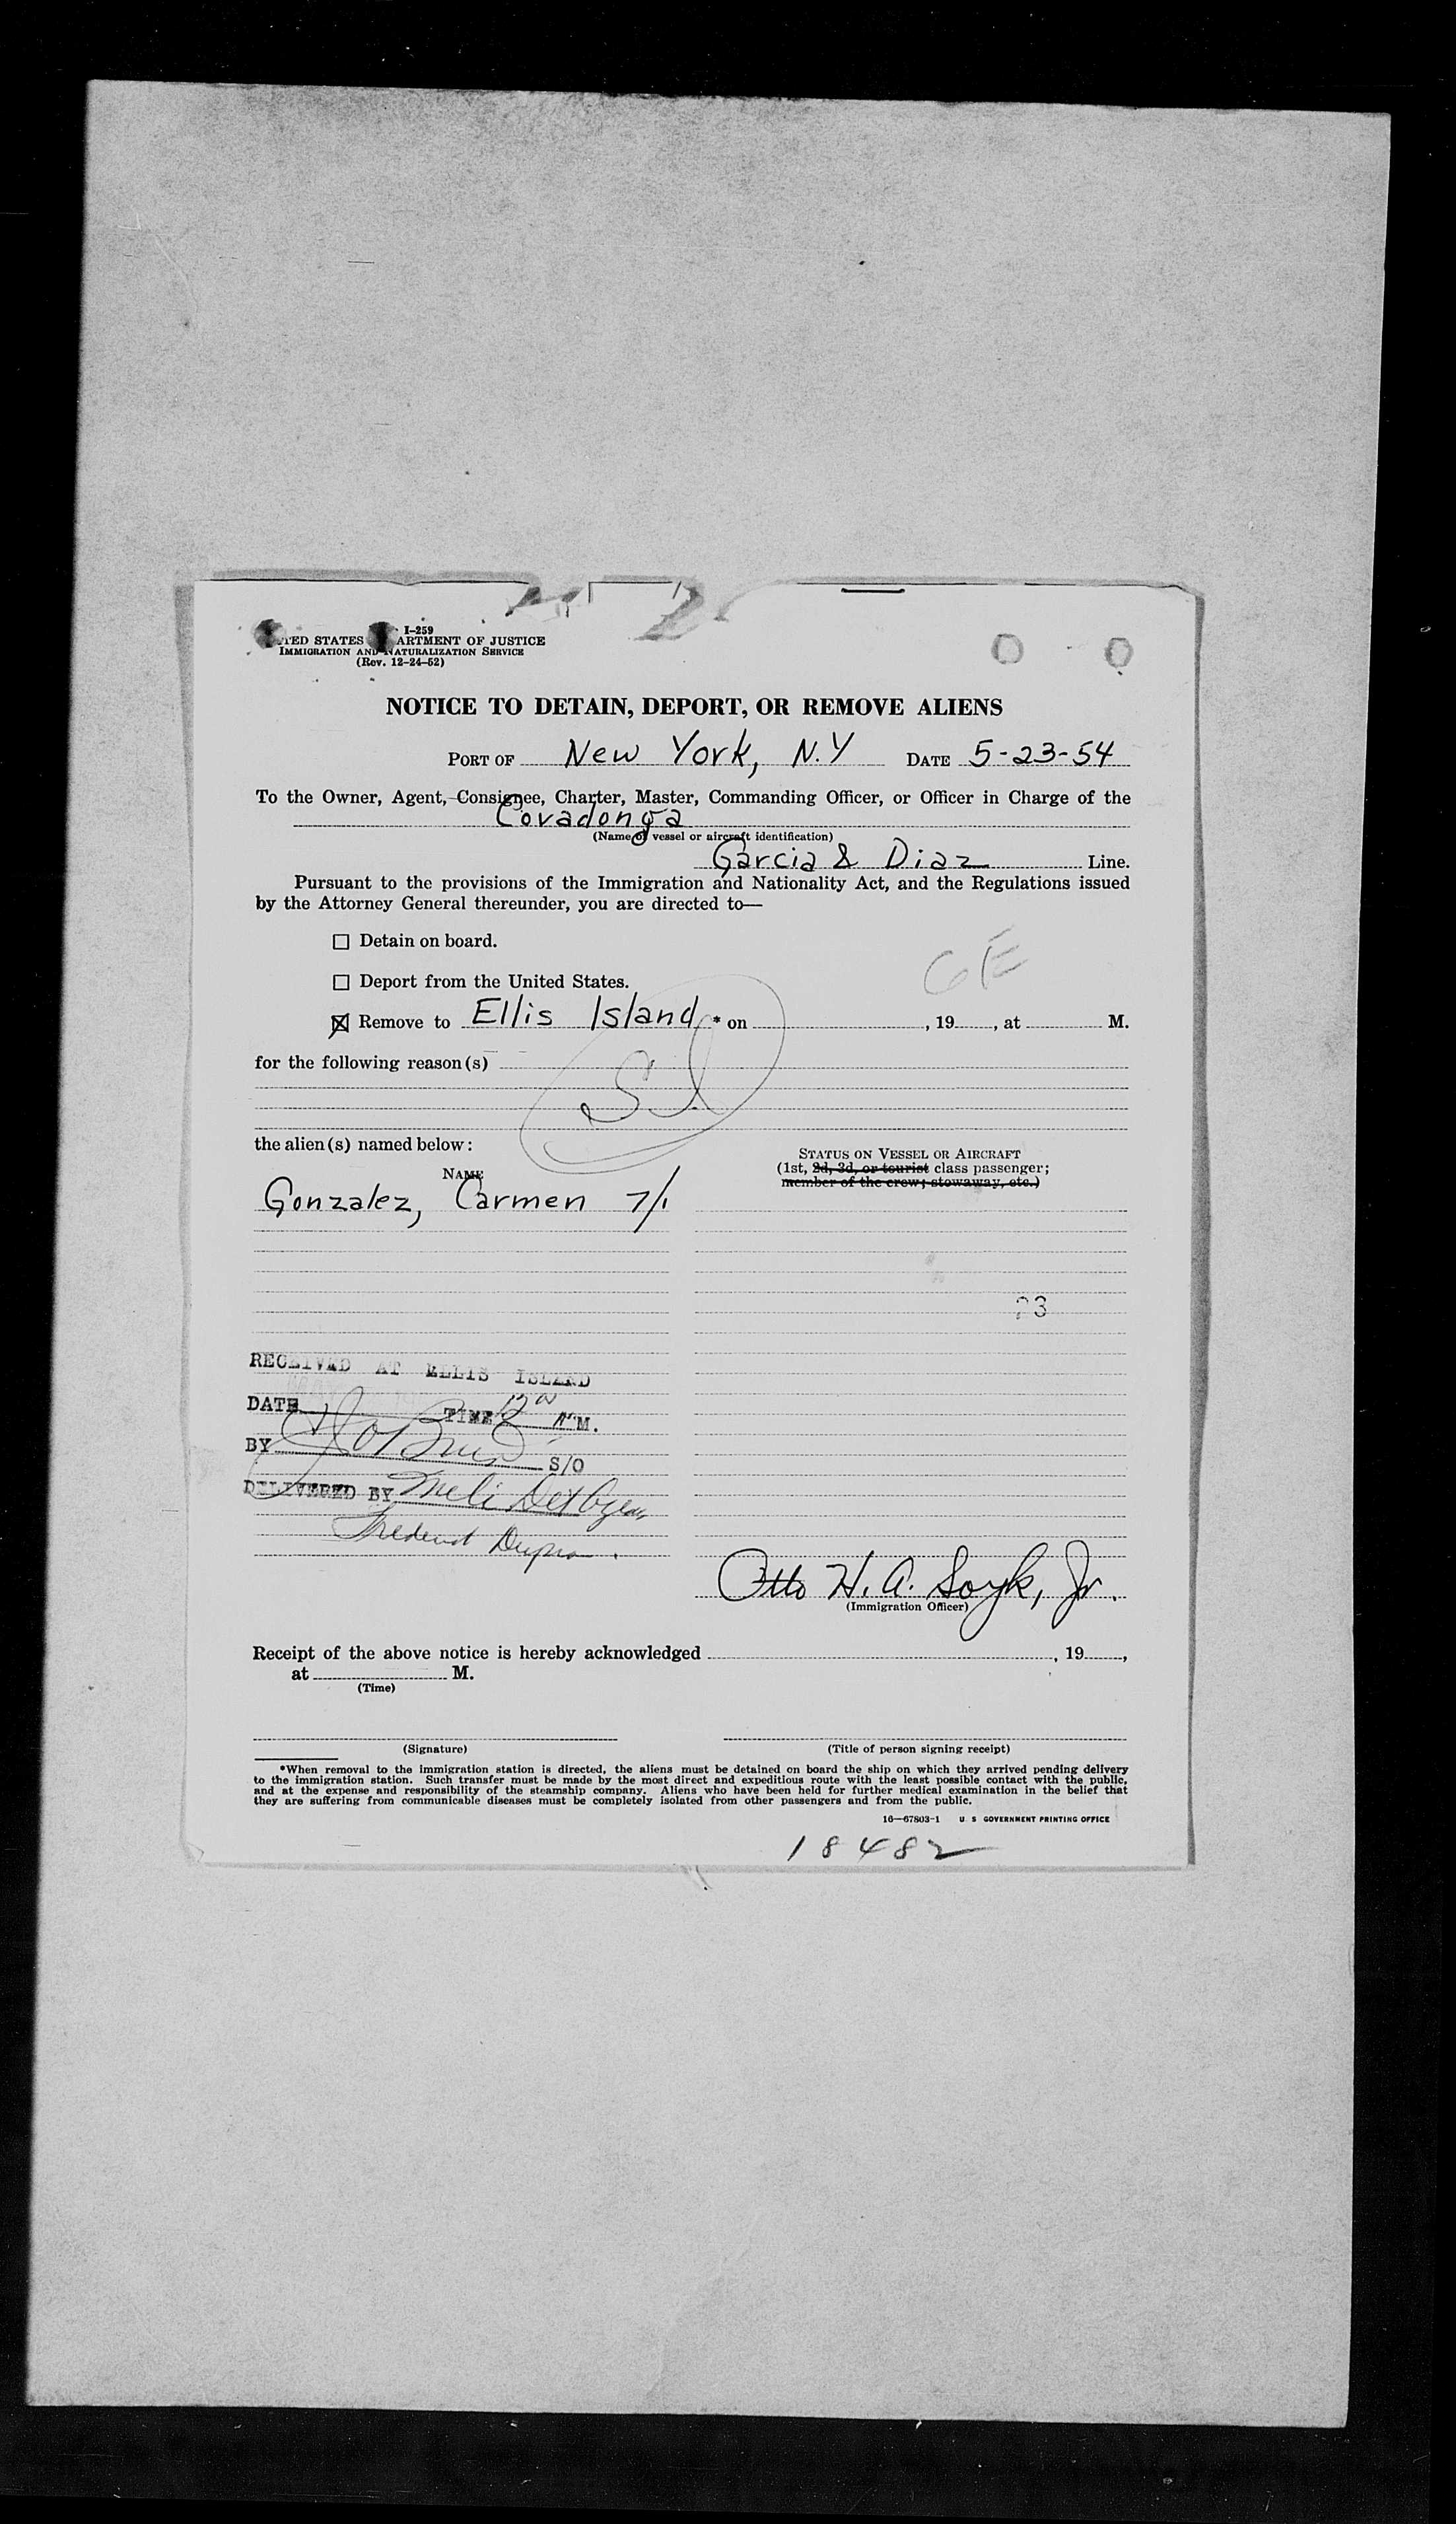 I-259
UNITED STATES DEPARTMENT OF JUSTICE
IMMIGRATION AND NATURALIZATION SERVICE
(Rev. 12-24-52)
NOTICE TO DETAIN, DEPORT, OR REMOVE ALIENS
PORT OF New York, N.Y DATE 5-23-54
To the Owner, Agent, Consignee, Charter, Master, Commanding Officer, or Officer in Charge of the
Covadonga
(Name of vessel or aircraft identification)
Garcia & Diaz Line.
Pursuant to the provisions of the Immigration and Nationality Act, and the Regulations issued
by the Attorney General thereunder, you are directed to—
☐ Detain on board.
GE
☐ Deport from the United States.
☒ Remove to Ellis Island * on , 19 , at M.
for the following reason(s)
SI
the alien(s) named below:
STATUS ON VESSEL OR AIRCRAFT
(1st, 2d, 3d, or tourist class passenger;
member of the crew; stowaway, etc.)
NAME
Gonzalez, Carmen 7/1
23
RECEIVED AT ELLIS ISLAND
DATE TIME 12 M.
BY S/O
DELIVERED BY
Otto H. A. Soyk, Jr.
(Immigration Officer)
Receipt of the above notice is hereby acknowledged , 19 ,
at M.
(Time)
(Signature) (Title of person signing receipt)
*When removal to the immigration station is directed, the aliens must be detained on board the ship on which they arrived pending delivery
to the immigration station. Such transfer must be made by the most direct and expeditious route with the least possible contact with the public,
and at the expense and responsibility of the steamship company. Aliens who have been held for further medical examination in the belief that
they are suffering from communicable diseases must be completely isolated from other passengers and from the public.
16—67803-1 U S GOVERNMENT PRINTING OFFICE
18482